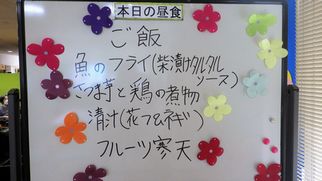 本日の昼食
ご飯
魚のフライ(柴漬けタルタル
ソース)
さつま芋と鶏の煮物
清汁(花フ、ネギ)
フルーツ寒天